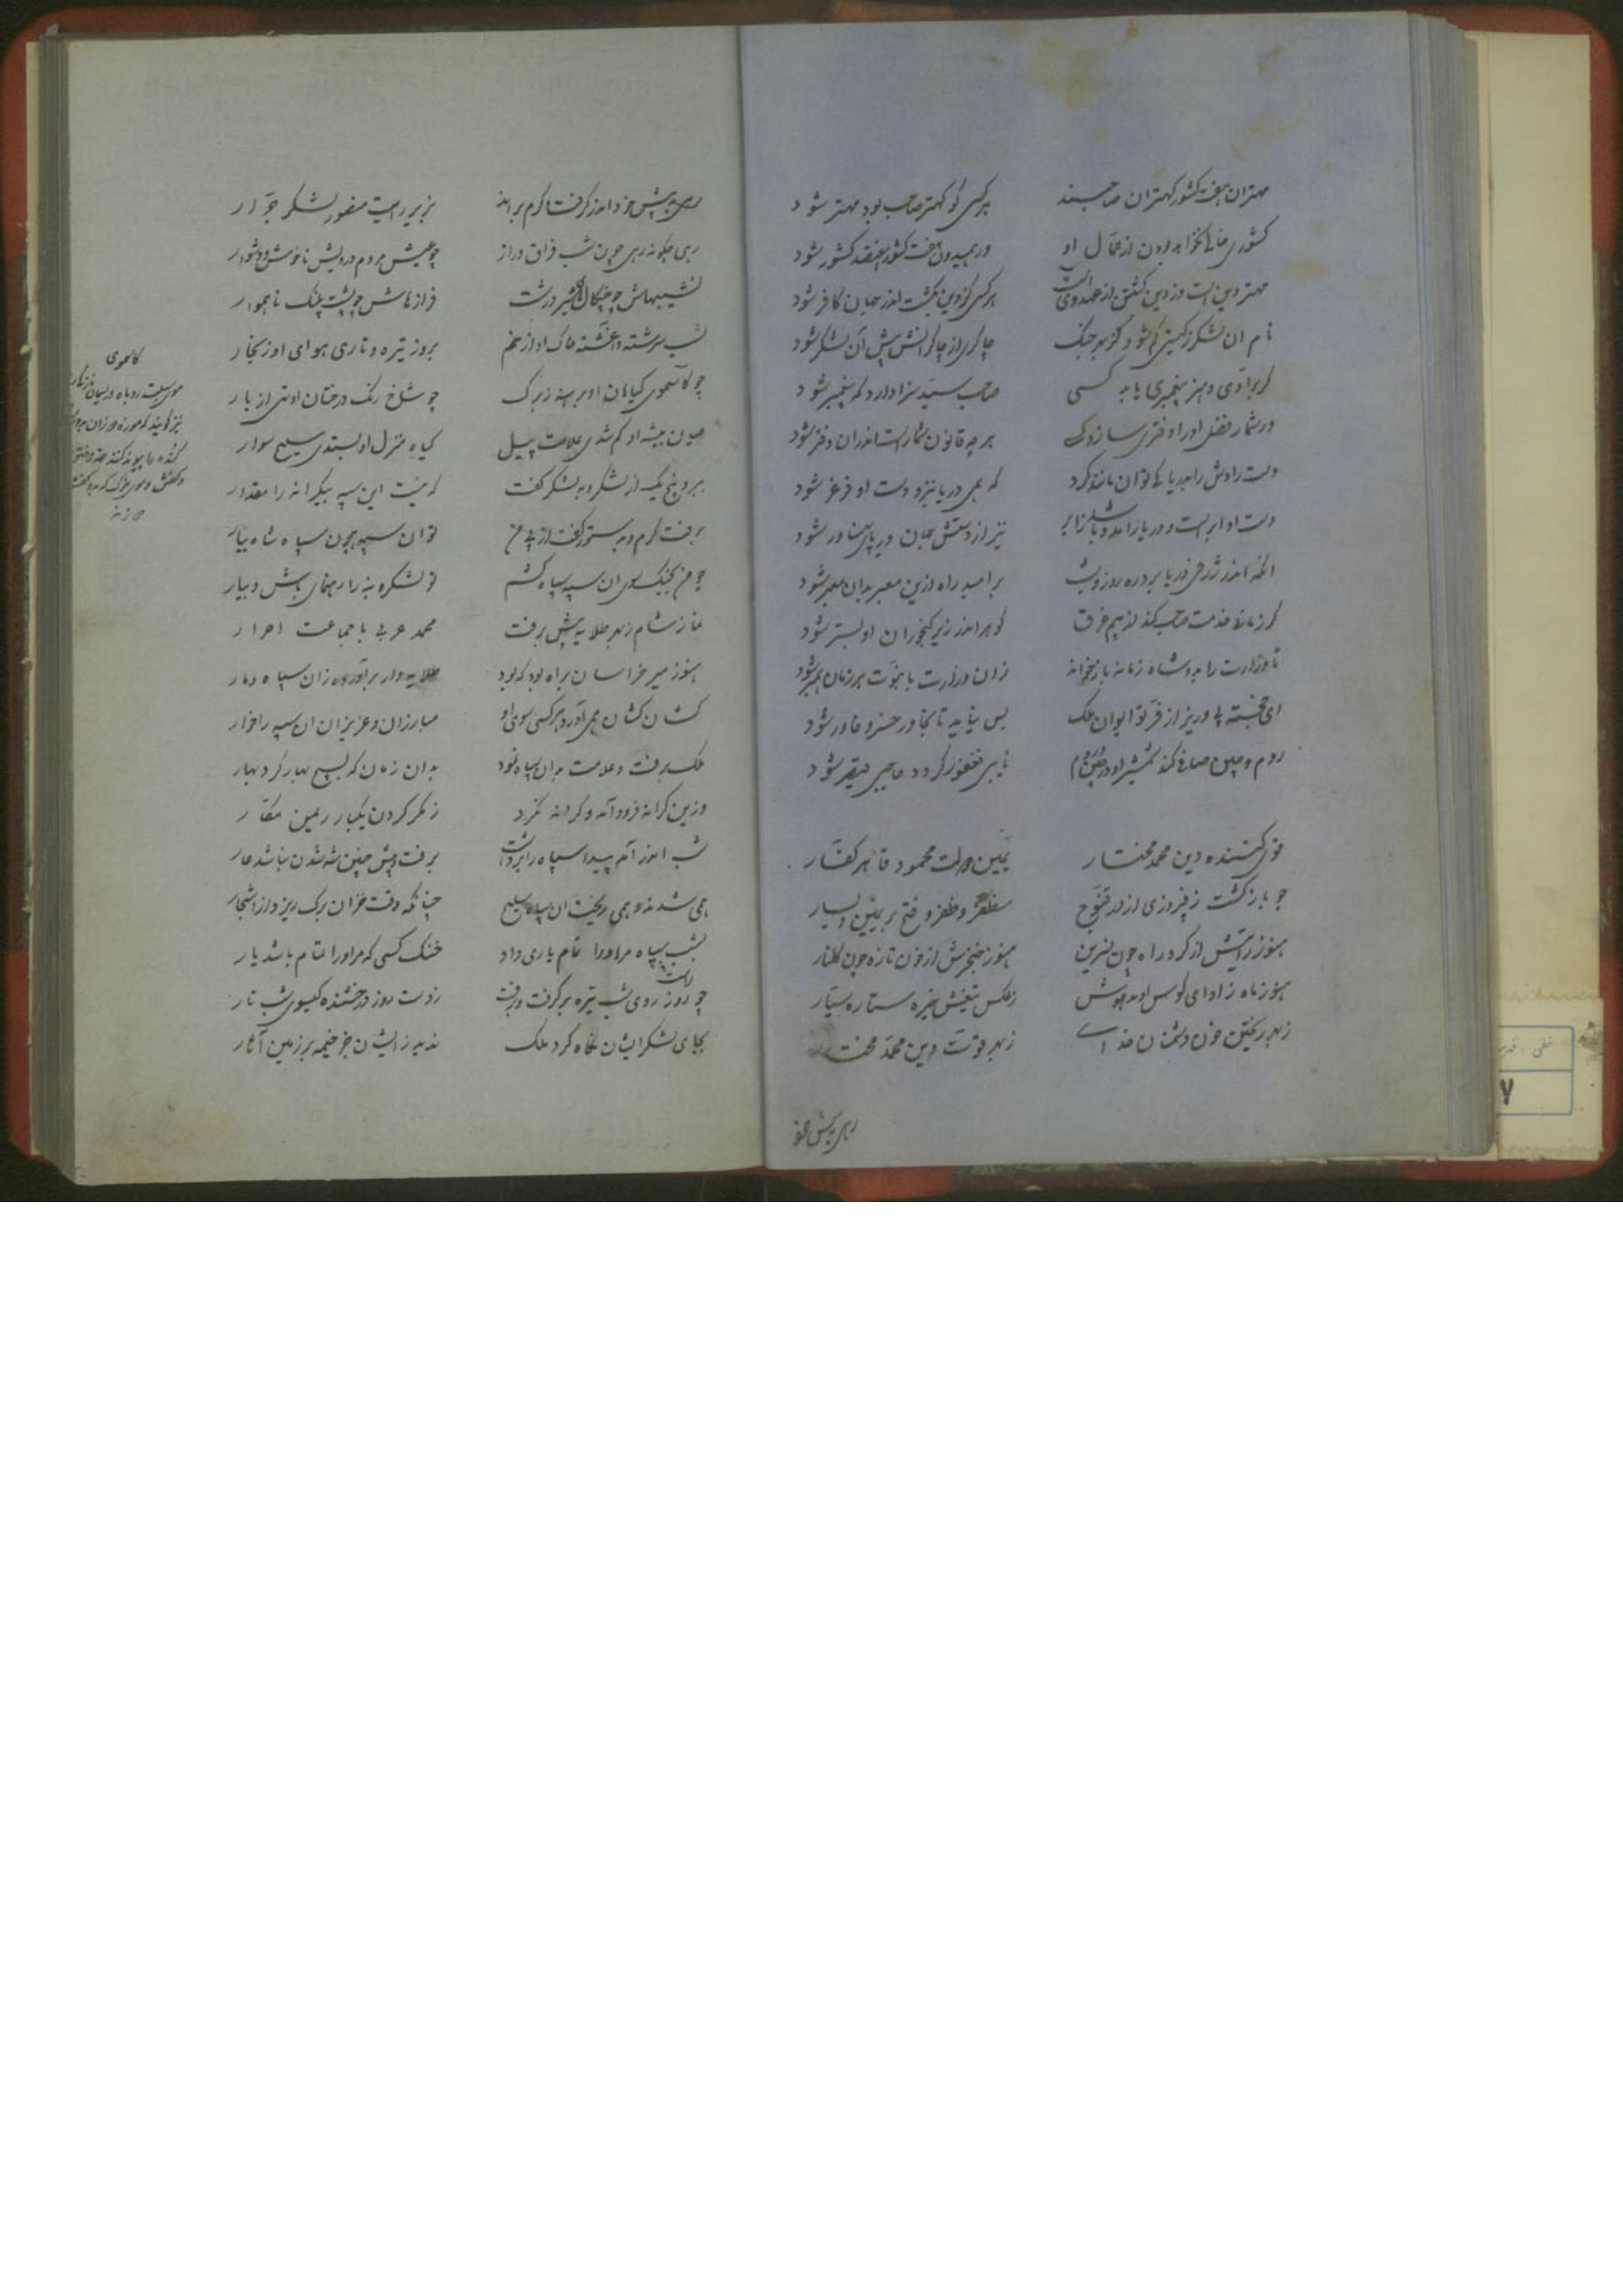 مهتران هفت کشور کهتران صاحبند هر کسی کو کهتر صاحب بود مهتر شود
کشوری خالی نخواهد بودن از عمال او ور همیدون هفت کشور هفتصد کشور شود
مهتر دین است وز دین گشتن از عهد وی است هر کسی کز دین بگشت اندر جهان کافر شود
نام آن لشکر ز گیتی گم شود کز بهر جنگ چاکری از چاکرانش پیش آن لشکر شود
گر برادی و هنر پیغمبری یابد کسی صاحب سید سزاوارد که پیغمبر شود
در شمار فضل او را دفتری سازد کسی هر چه قانون شمارست اندران دفتر شود
دست رادش را بدریا کی توان مانند کرد که همی دریا بنزد دست او فرغر شود
دست او ابرست و دریا را مدد باشد ز ابر نیز از دستش جهان دریای پهناور شود
آنکه اندر ژرف دریا بر دره روز و شب بر امید راه ازین معبر بدان معبر شود
گر زمانی خدمت صاحب کند از بیم غرق گوهر اندر زیر گنجوران او بستر شود
تا وزارت را بدو شاه زمانه بازخواند زان وزارت با نبوت هر زمان همبر شود
ای خجسته پی وزیر از فر تو ایوان ملک بس نیاید تا بجا ور خسرو خاور شود
روم و چین صافی کند شمشیر او در چین و روم نایبی فغفور گردد حاجبی قیصر شود
قوی کننده دین محمد مختار یمین دولت محمود قاهر کفار
چو باز گشت ز فیروزی از در قنوج مظفر و ظفر و فتح بر یمین و یسار
هنوز رایتش از گرد راه چون نسرین هنوز خنجرش از خون تازه چون گلنار
هنوز ماه ز آوای کوس او مدهوش ز عکس تیغش خیره ستاره سیار
ز بهر ریختن خون دشمنان خدای ز بهر قوت دین محمد مختار
رهی پیش خو
رهی به پیش خود اندر گرفت و گرم براند بزیر رایت منصور لشکر جرار
رهی چگونه رهی چون شب فراق دراز چو عیش مردم درویش ناخوش و دشوار
نشیبهاش چو چنگالهای شیر درشت فرازهاش چو پشت پلنگ ناهموار
شب سرشته و آغشته خاک او از نم بروز تیره و تاری هوای او ز بخار
چو کاسموی گیاهان او برهنه ز برگ چو شاخ رنگ درختان او تهی از بار
میون بیشه او گم شدی علامت پیل گیاه منزل او بستدی سلیح سوار
برو بخ یک از لشکر و به لشکر گفت که نیست این سپه بیکرانه را مقدار
برفت گرم و به دستور گفت از پی من تو آن سپه چون سپاه شاه بیار
چو من بجنگ سوی آن سپه سپاه کشم تو لشکر و بنه را رهنمای باش و بیار
نماز شام ز بهر طلایه پیش برفت محمد عربی با جماعت احرار
هنوز میر خراسان براه بود که بود طلایه دار برآورده زان سپاه دمار
کشان کشان همی آورد هر کسی سوی او مبارزان و عزیزان آن سپه را خوار
ملک برفت و علامت بدان سپاه نمود بدان زمان که بسیج بهار کرد بهار
وزین کرانه فرود آمد و کرانه نکرد ز مکر کردن یکبار ریمن مکار
شب اندر آمد پیدا سپاه را برداشت برفت و پیش چنین شه شدن نباشد عار
همی شدند و همی ریخت آن سپاه سلیح چنانکه وقت خزان برگ ریزد از اشجار
شب سپاه مر او را تمام یاری داد خنک کسی که مر او را تمام باشد یار
چو روز روی شب تیره برگرفت و برفت زدست روز درخشنده گیسوی شب تار
بجای لشکر ایشان نگاه کرد ملک ندید زایشان جز خیمه بر زمین آثار
کاسموی